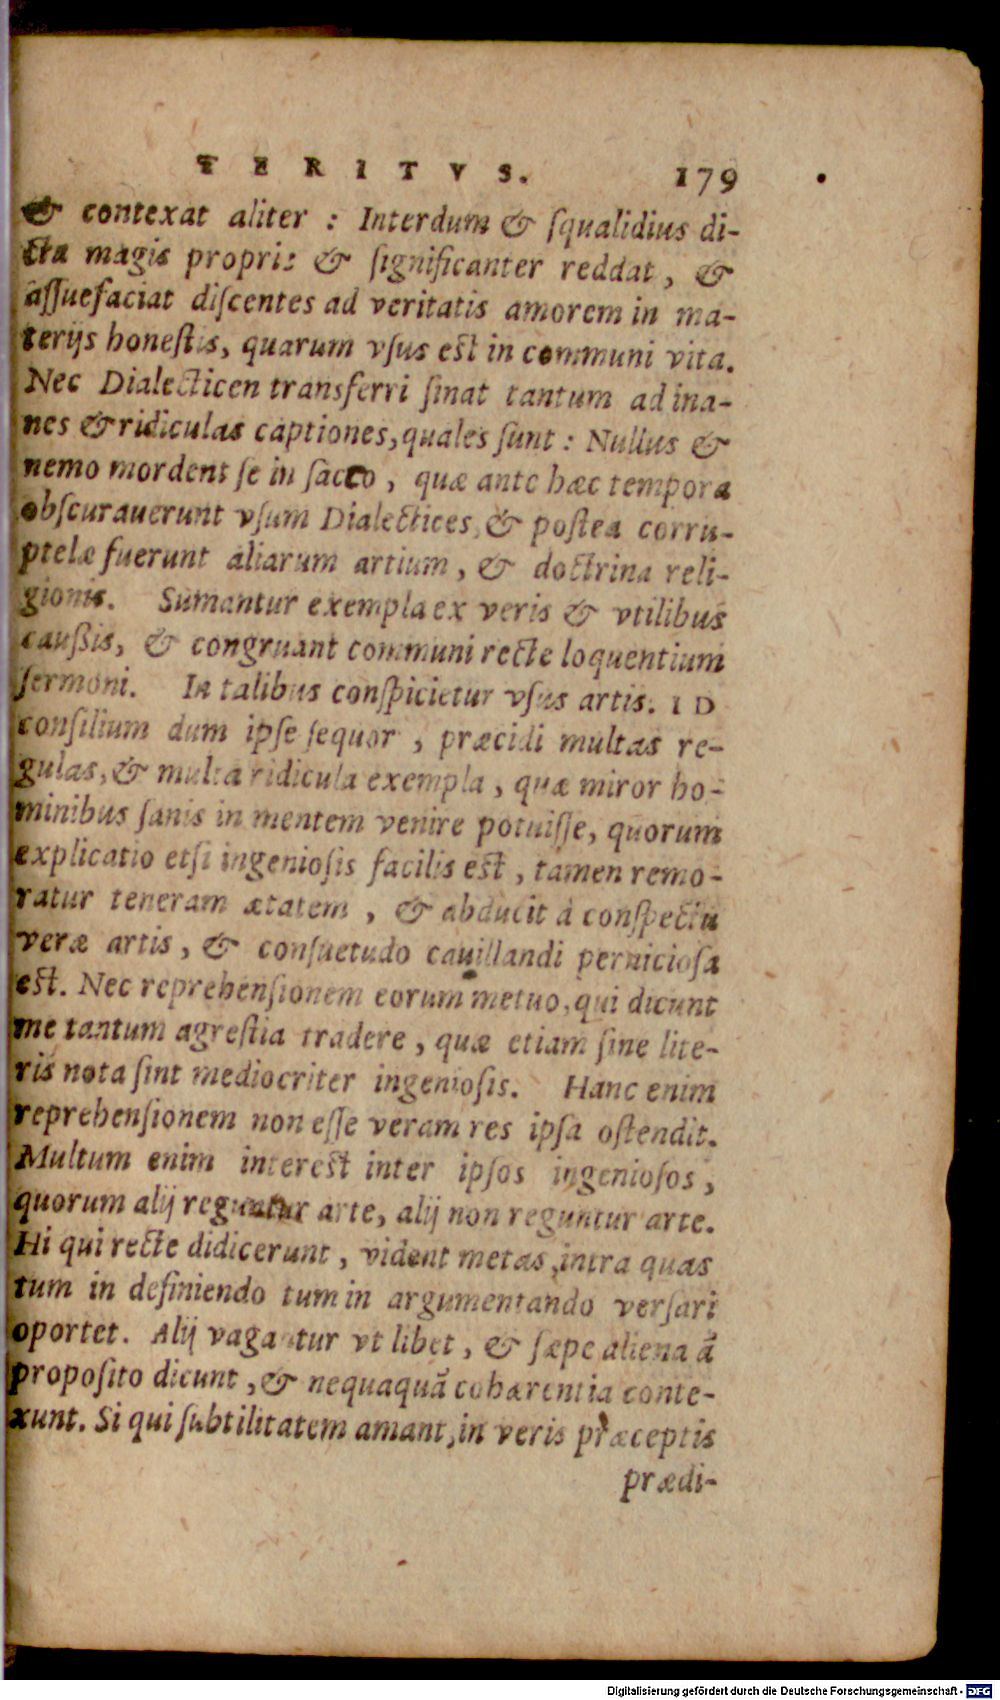 TERITVS. 179
& contexat aliter : Interdum & ſqualidius di-
cta magis proprie & ſignificanter reddat, &
aſſuefaciat diſcentes ad veritatis amorem in ma-
terijs honeſtis, quarum vſus est in communi vita.
Nec Dialecticen transferri ſinat tantum ad ina-
nes & ridiculas captiones, quales ſunt : Nullus &
nemo mordent ſe in ſacco, quæ ante hæc tempora
obſcurauerunt vſum Dialectices, & poſtea corru-
ptelæ fuerunt aliarum artium, & doctrina reli-
gionis. Sumantur exempla ex veris & vtilibus
caußis, & congruant communi recte loquentium
ſermoni. In talibus conſpicietur vſus artis. ID
conſilium dum ipſe ſequor, præcidi multas re-
gulas, & multa ridicula exempla, quæ miror ho-
minibus ſanis in mentem venire potuiſſe, quorum
explicatio etſi ingenioſis facilis est, tamen remo-
ratur teneram ætatem, & abducit à conſpectu
veræ artis, & conſuetudo cauillandi pernicioſa
est. Nec reprehenſionem eorum metuo, qui dicunt
me tantum agreſtia tradere, quæ etiam ſine lite-
ris nota ſint mediocriter ingenioſis. Hanc enim
reprehenſionem non eſſe veram res ipſa oſtendit.
Multum enim interest inter ipſos ingenioſos,
quorum alij reguntur arte, alij non reguntur arte.
Hi qui recte didicerunt, vident metas, intra quas
tum in definiendo tum in argumentando verſari
oportet. Alij vagantur vt libet, & ſæpe aliena ã
propoſito dicunt, & nequaquã cohærentia conte-
xunt. Si qui ſubtilitatem amant, in veris præceptis
prædi-
Digitalisierung gefördert durch die Deutsche Forschungsgemeinschaft - DFG